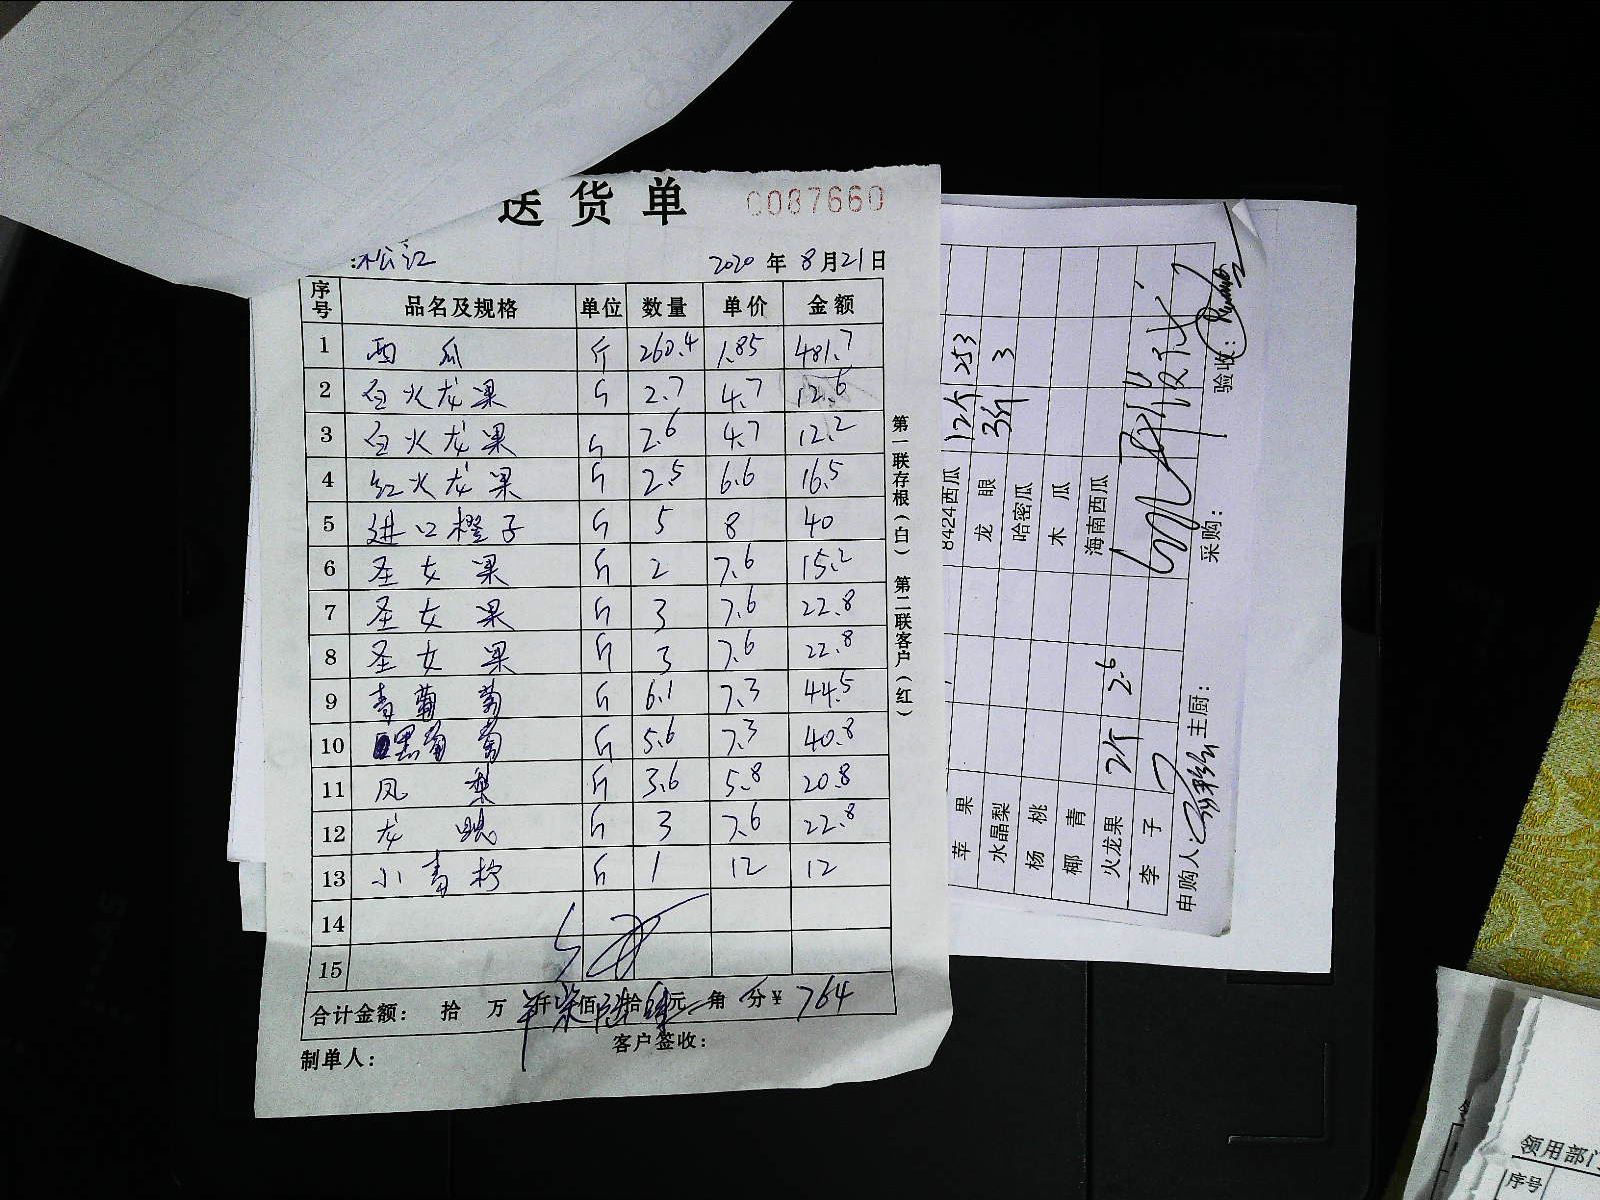 送货单 C087660
:松江 2020年8月21日
序号 品名及规格 单位 数量 单价 金额
1 西瓜 斤 260.4 1.85 481.7
2 白火龙果 斤 2.7 4.7 12.6
3 白火龙果 斤 2.6 4.7 12.2
4 红火龙果 斤 2.5 6.6 16.5
5 进口橙子 斤 5 8 40
6 圣女果 斤 2 7.6 15.2
7 圣女果 斤 3 7.6 22.8
8 圣女果 斤 3 7.6 22.8
9 青葡萄 斤 6.1 7.3 44.5
10 黑葡萄 斤 5.6 7.3 40.8
11 凤梨 斤 3.6 5.8 20.8
12 龙眼 斤 3 7.6 22.8
13 小青柠 斤 1 12 12
14
15
合计金额: 拾 万 仟 柒 佰 陆 拾 肆 元 角 分 ¥ 764
制单人: 客户签收:
第一联存根(白) 第二联客户(红)
苹果 8424西瓜 12个 253
水晶梨 龙眼 3斤 3
杨桃 哈密瓜
椰青 木瓜
火龙果 2个 2.6 海南西瓜
李子
申购人: 主厨: 采购: 验收:
领用部门
序号